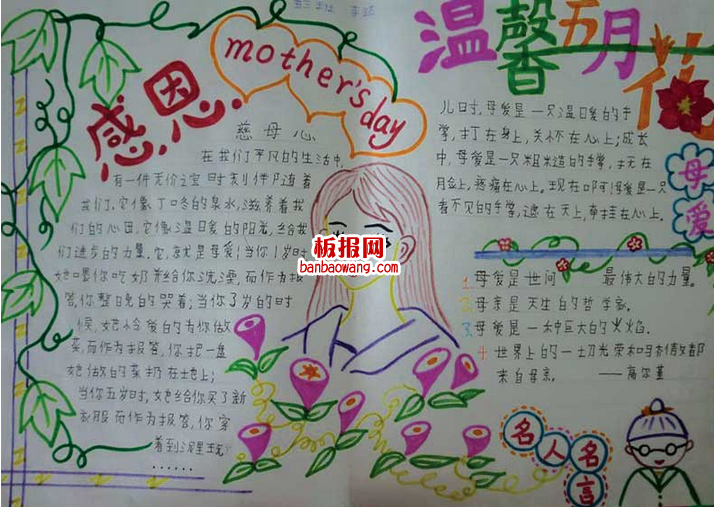 感恩
mother's day
温馨五月花
慈母心
在我们平凡的生活中,
有一件无价之宝时刻伴随着
我们.它像丁冬的泉水,滋养着我
们的心田,它像温暖的阳光,给我
们进步的力量.它就是母爱!当你1岁时
她喂你吃奶并给你洗澡,而作为报
答你整晚的哭着;当你3岁的时
候,她怜爱的为你做
菜,而作为报答,你把一盘
她做的菜扔在地上;
当你五岁时,她给你买了新
衣服而作为报答,你穿
着到泥里玩
······
板报网
banbaowang.com
儿时,母爱是一只温暖的手
掌,打在身上,关怀在心上;成长
中,母爱是一只粗糙的手掌,抚在
脸上,疼痛在心上,现在
看不见的手掌,遮在天上,牵挂在心上.
母爱
1.母爱是世间 最伟大的力量.
2.母亲是天生的哲学家.
3.母爱是一种巨大的火焰.
4.世界上的一切光荣和骄傲都
来自母亲. ——高尔基
名人名言